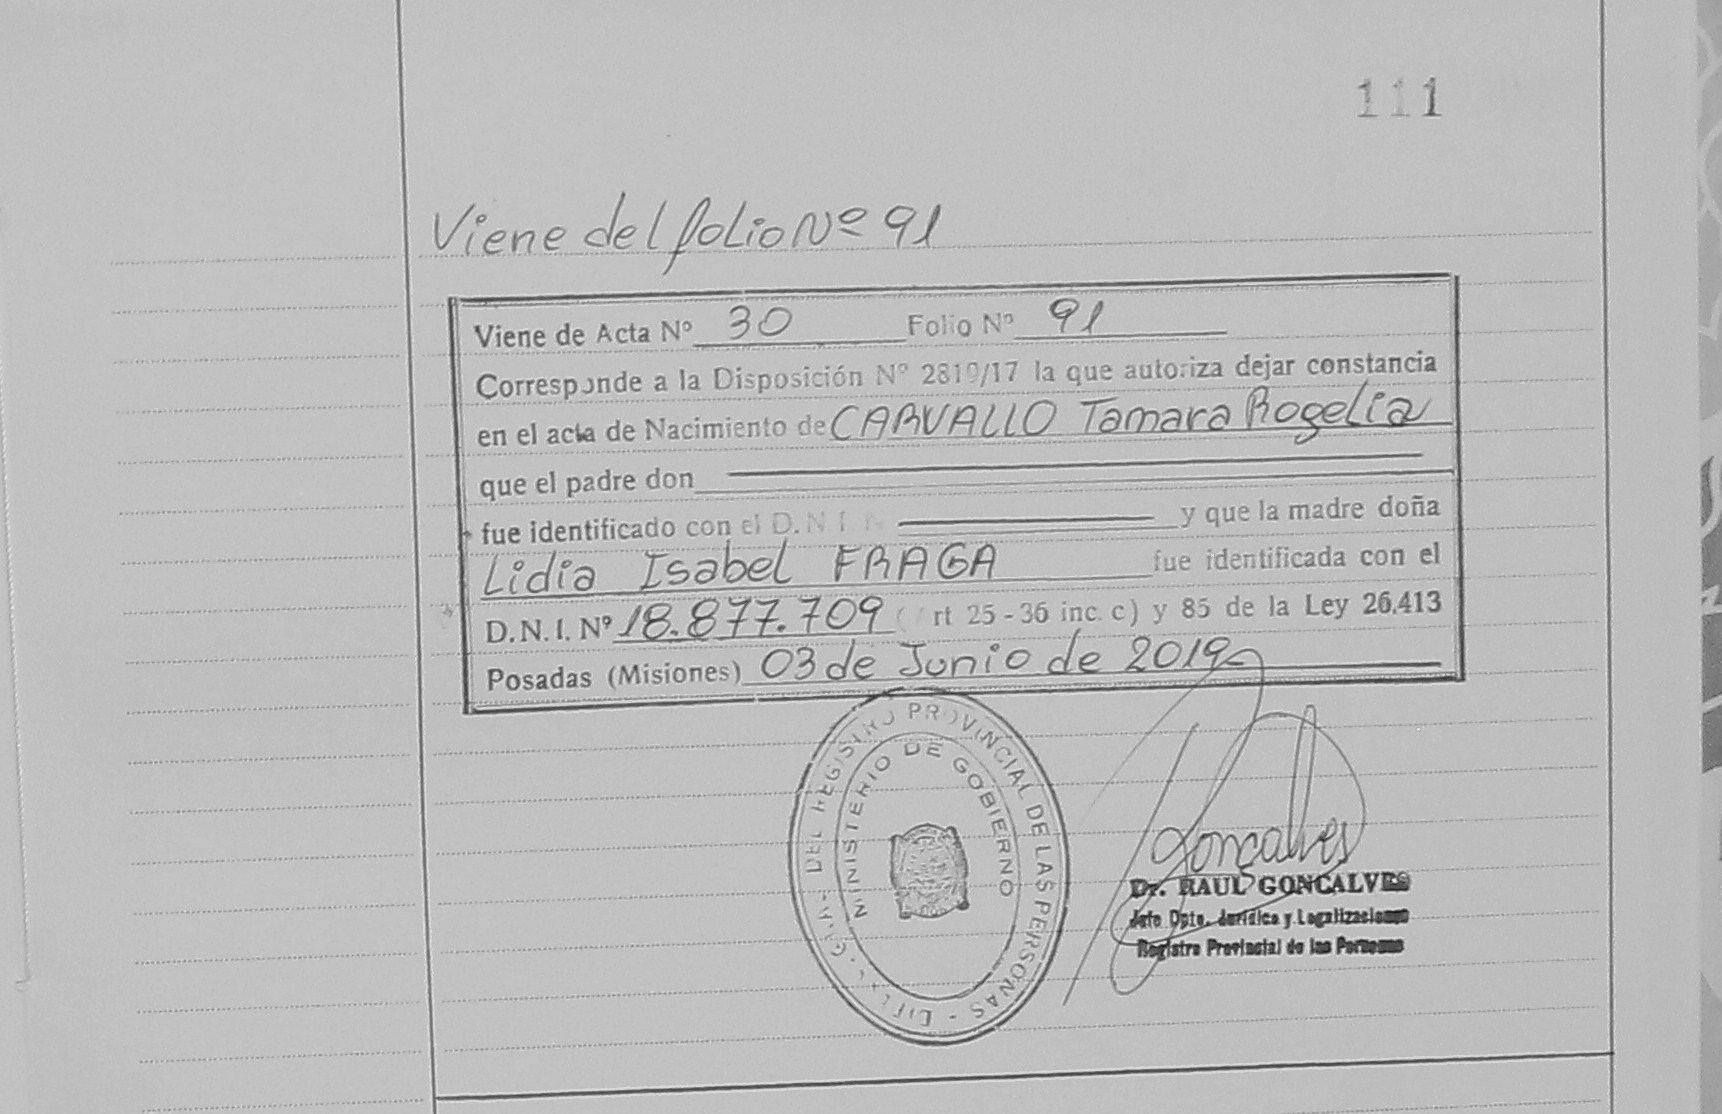 111
Viene del folio Nº 91
Viene de Acta Nº 30 Folio Nº 91
Corresponde a la Disposición Nº 2819/17 la que autoriza dejar constancia
en el acta de Nacimiento de CARVALLO Tamara Rogelia
que el padre don
fue identificado con el D.N.I. N y que la madre doña
Lidia Isabel FRAGA fue identificada con el
D.N.I. Nº 18.877.709 (rt 25 - 36 inc. c) y 85 de la Ley 26.413
Posadas (Misiones) 03 de Junio de 2019
DEL REGISTRO PROVINCIAL DE LAS PERSONAS
MINISTERIO DE GOBIERNO
Goncalves
Dr. RAUL GONCALVES
Jefe Dpto. Jurídico y Legalizaciones
Registro Provincial de las Personas